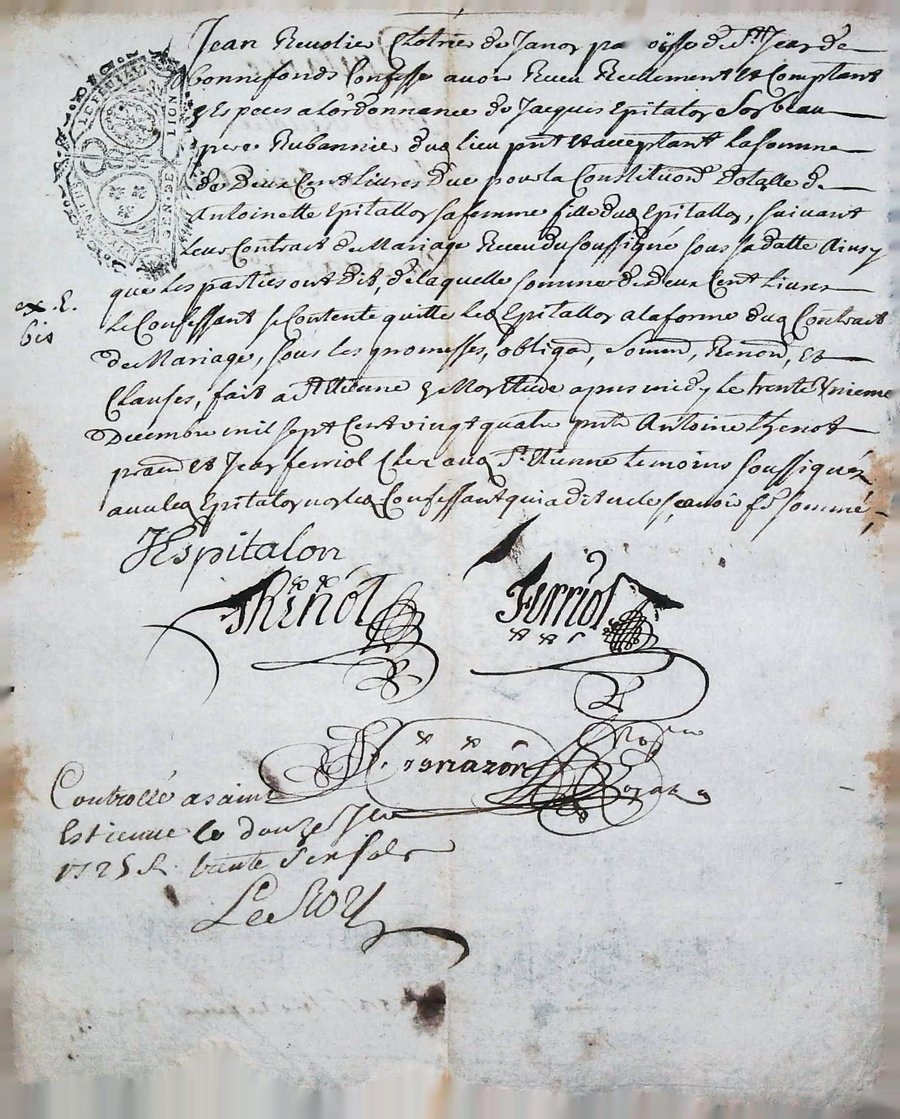 Jean Revolier Clotrier de Janon paroisse de St Jean de
bonnefonds Confesse avoir Receu Reellement et Comptant
Especes a lordonnance de Jacques Epitalon Son beau
pere Rubannier dud lieu pnt et acceptant la somme
de Deux Cent Livres due pour la Constitution dotalle de
Antoinette Epitallon sa femme fille dud Epitallon, suivant
leur Contract de Mariage Receu du soussigné sous sa datte Ainsy
que les parties ont dit, de laquelle somme de deux Cent Livres
ex. E.
bis
Le Confessant se Contente quitte led Epitallon a la forme dud Contract
de Mariage, sous les promesses, obligaõ, Renonõ, Et
Clauses, fait a St Etienne apres midy le trente unieme
Decembre mil sept Cent vingt quatre pnts Antoine thenot
praen et Jean ferriol Clerz aud St Etienne temoins soussignéz
avec led Epitalon non led Confessant qui a dit ne le scavoir somme
Hespitalon
Thénot
Ferriol
Controllé a saint
Estienne le douze
1725 R. trente six sols
LeRoy